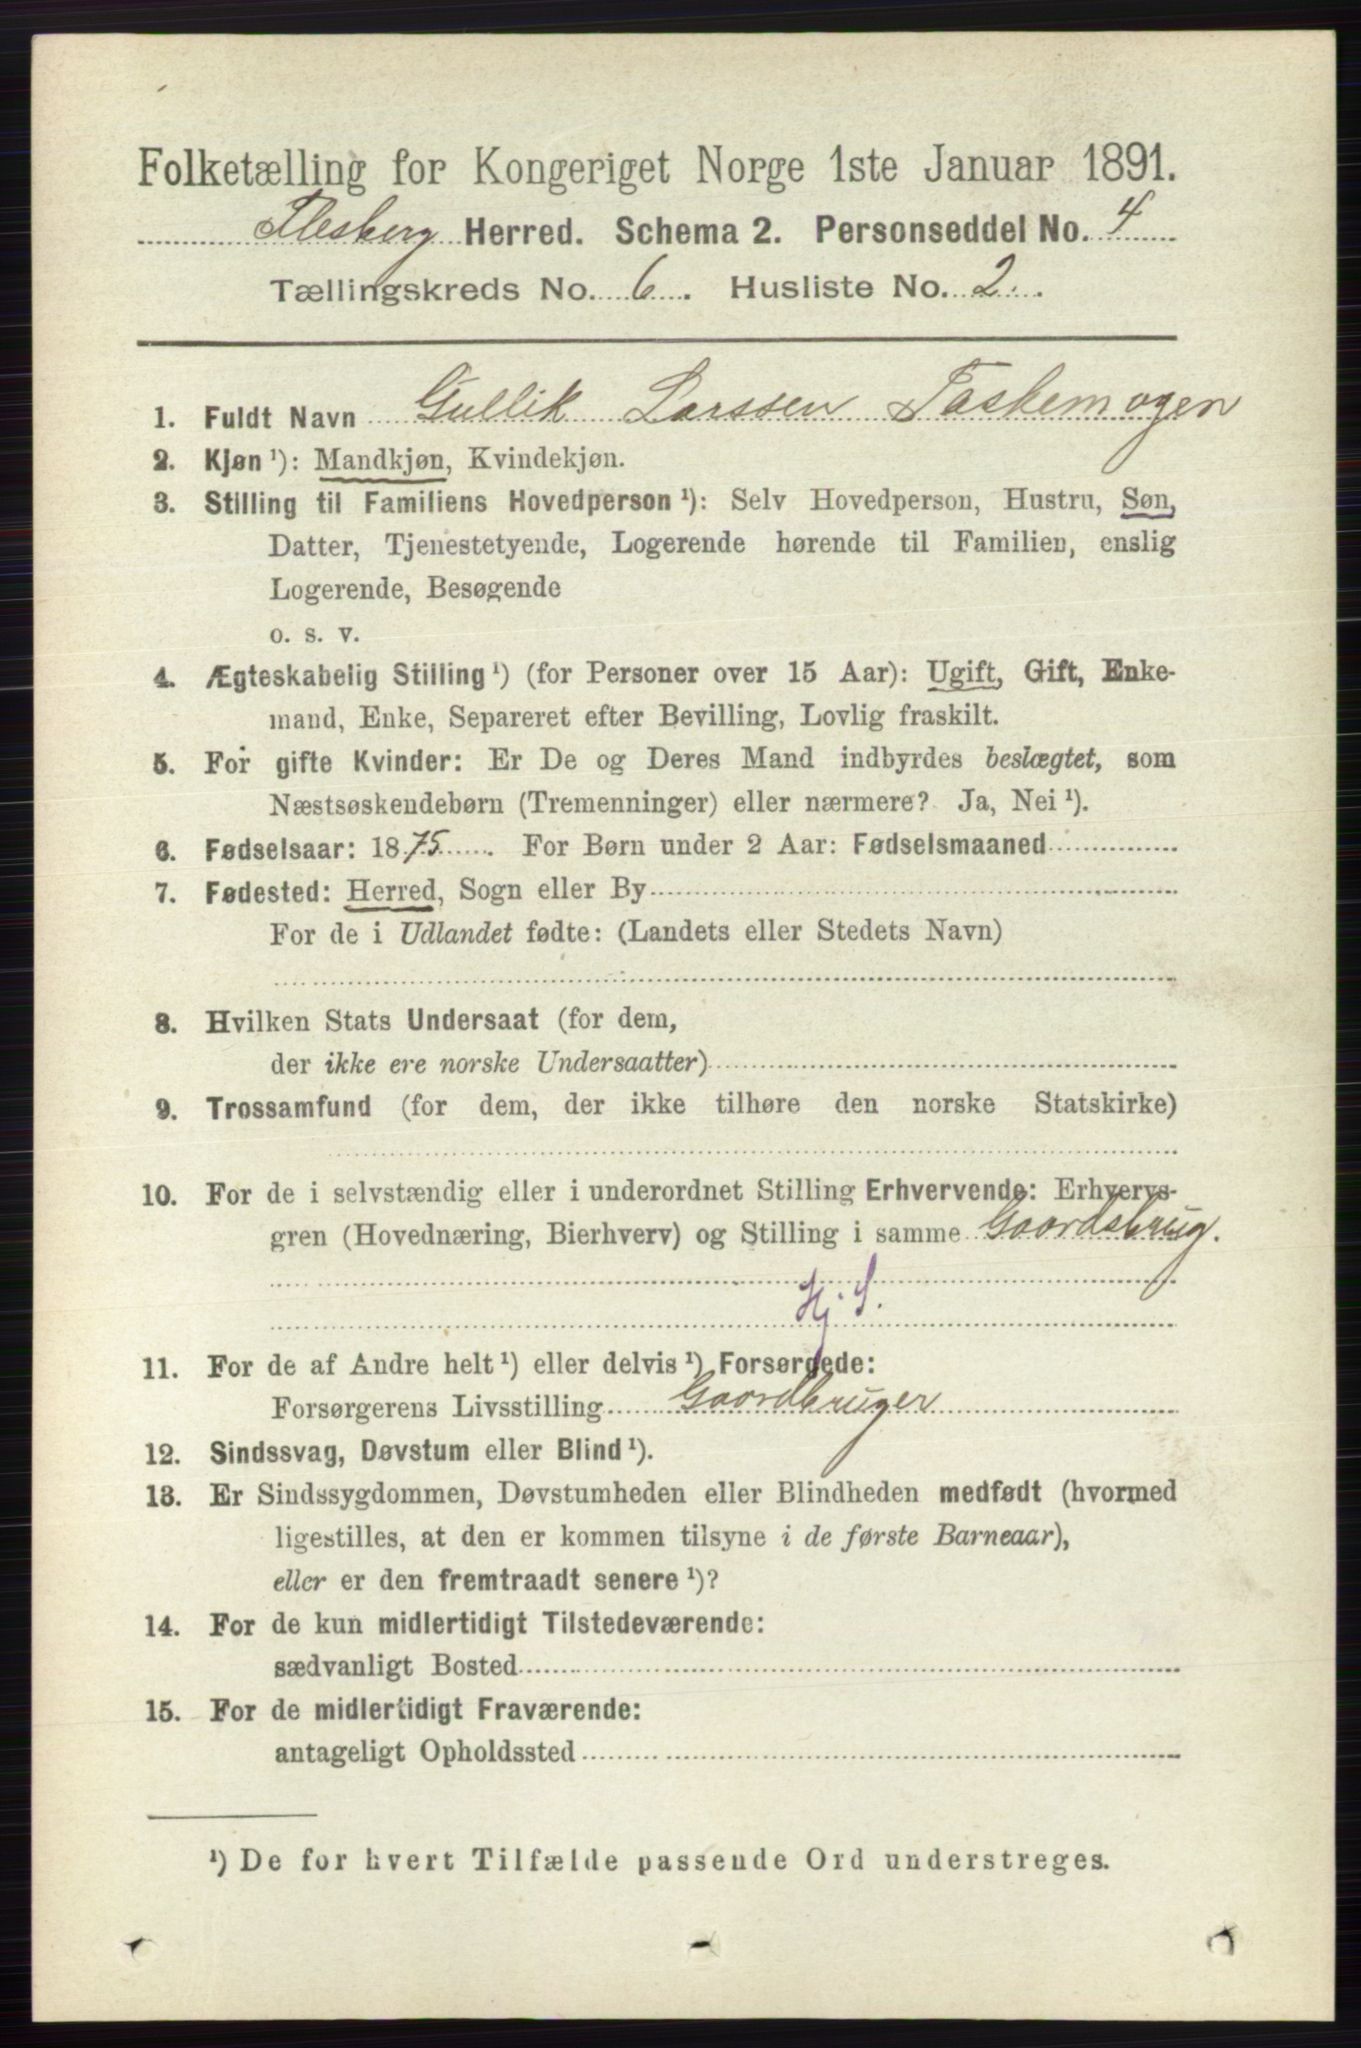 Folketælling for Kongeriget Norge 1ste Januar 1891.
Flesberg Herred. Schema 2. Personseddel No. 4
Tællingskreds No. 6. Husliste No. 2.
1. Fuldt Navn Gullik Larssen Taskemogen
2. Kjøn ¹): Mandkjøn, Kvindekjøn.
3. Stilling til Familiens Hovedperson ¹): Selv Hovedperson, Hustru, Søn,
Datter, Tjenestetyende, Logerende hørende til Familien, enslig
Logerende, Besøgende
o. s. v.
4. Ægteskabelig Stilling ¹) (for Personer over 15 Aar): Ugift, Gift, Enke-
mand, Enke, Separeret efter Bevilling, Lovlig fraskilt.
5. For gifte Kvinder: Er De og Deres Mand indbyrdes beslægtet, som
Næstsøskendebørn (Tremenninger) eller nærmere? Ja, Nei ¹).
6. Fødselsaar: 1875. For Børn under 2 Aar: Fødselsmaaned
7. Fødested: Herred, Sogn eller By
For de i Udlandet fødte: (Landets eller Stedets Navn)
8. Hvilken Stats Undersaat (for dem,
der ikke ere norske Undersaatter)
9. Trossamfund (for dem, der ikke tilhøre den norske Statskirke)
10. For de i selvstændig eller i underordnet Stilling Erhvervende: Erhvervs-
gren (Hovednæring, Bierhverv) og Stilling i samme Gaardsbrug.
Hj. S.
11. For de af Andre helt ¹) eller delvis ¹) Forsørgede:
Forsørgerens Livsstilling Gaardbruger
12. Sindssvag, Døvstum eller Blind ¹).
13. Er Sindssygdommen, Døvstumheden eller Blindheden medfødt (hvormed
ligestilles, at den er kommen tilsyne i de første Barneaar),
eller er den fremtraadt senere ¹)?
14. For de kun midlertidigt Tilstedeværende:
sædvanligt Bosted
15. For de midlertidigt Fraværende:
antageligt Opholdssted
¹) De for hvert Tilfælde passende Ord understreges.